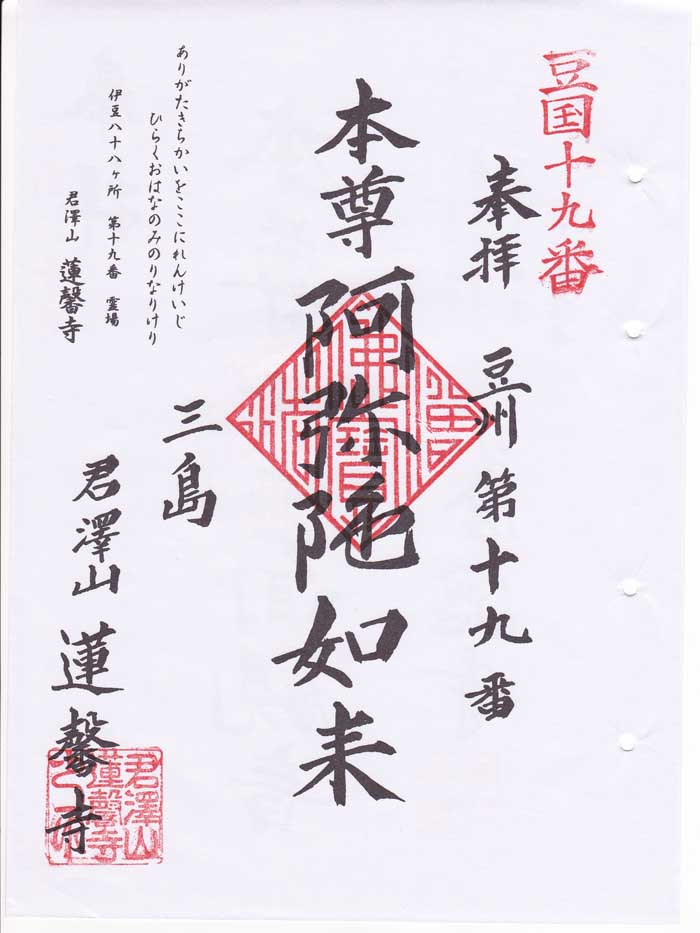 豆国十九番
奉拝　豆州第十九番
本尊阿弥陀如来
三島
君澤山　蓮馨寺
ありがたきちかいをここにれんけいじ
ひらくおはなのみのりなりけり
伊豆八十八ヶ所　第十九番　霊場
君澤山　蓮馨寺
君澤山
蓮馨寺